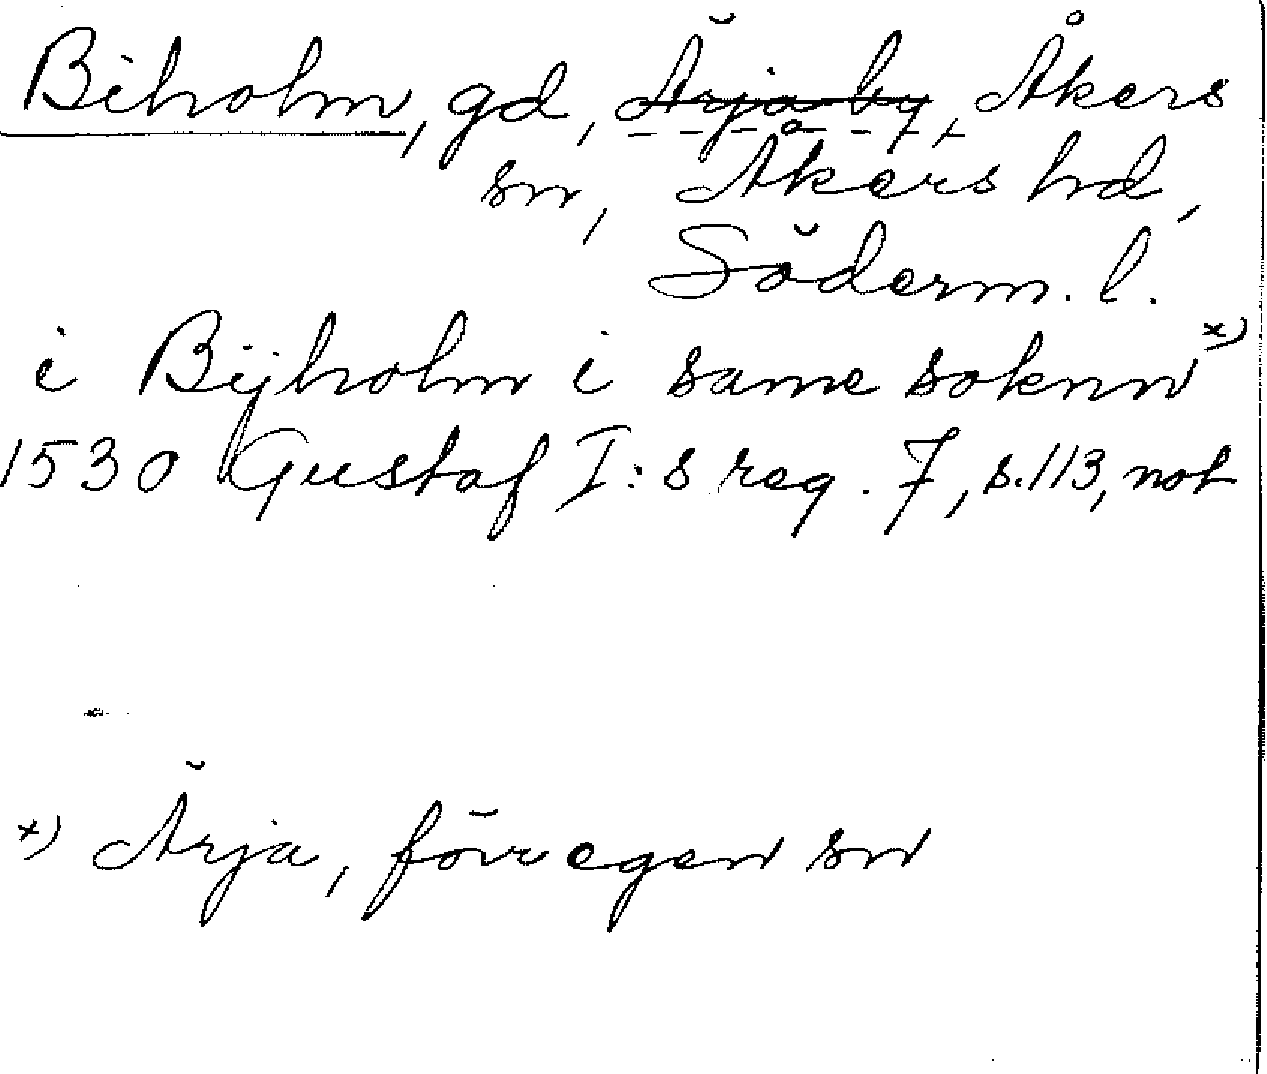 Biholm, gd, Ärja by, Åkers
sn, Åkers hd,
Söderm. l.
i Bijholm i same soknn x)
1530 Gustaf I:s reg. 7, s. 113, not
x) Ärja, förr egen sn